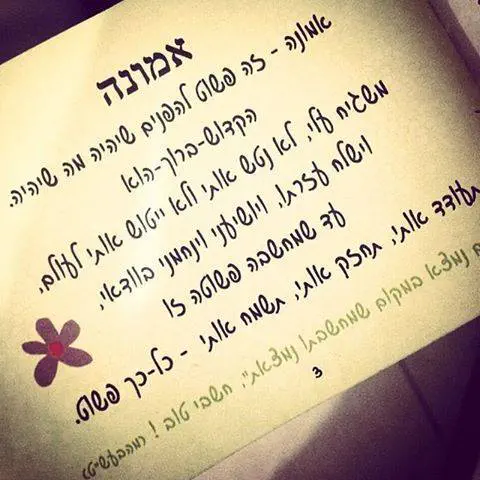 אמונה
אמונה - זה פשוט להפנים שיהיה מה שיהיה.
הקדוש-ברוך-הוא
משגיח עלי, לא נטש אותי ולא ייטוש אותי לעולם,
וישלח עזרתו, ויושיעני וינחמני בוודאי,
עד שמחשבה פשוטה זו
תעודד אותי, תחזק אותי, תשמח אותי - כל-כך פשוט.
נמצא במקום שמחשבתו נמצאת". חשבי טוב ! (מהבעש"ט)
3